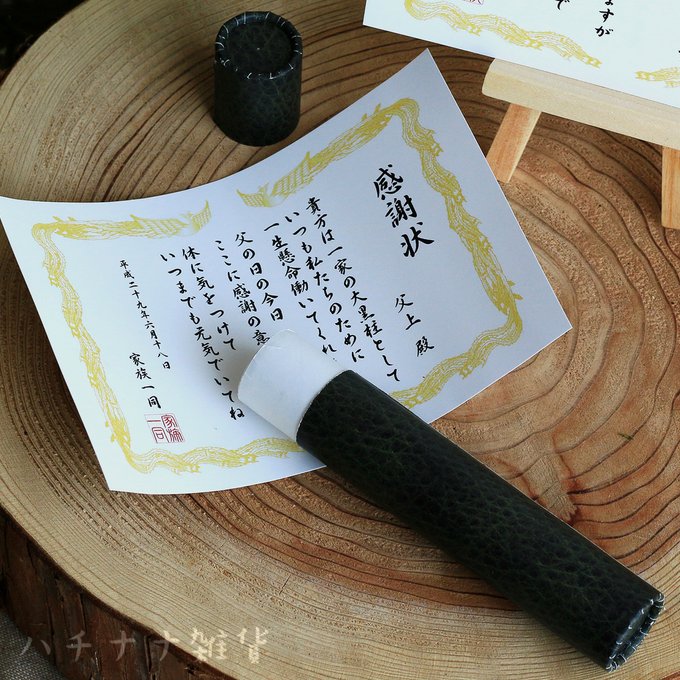 感謝状
父上 殿
貴方は一家の大黒柱として
いつも私たちのために
一生懸命働いてくれ
父の日の今日
ここに感謝の意
体に気をつけて
いつまでも元気でいてね
平成二十九年六月十八日
家族一同
家族一同
ますが
で
ハチナナ雑貨